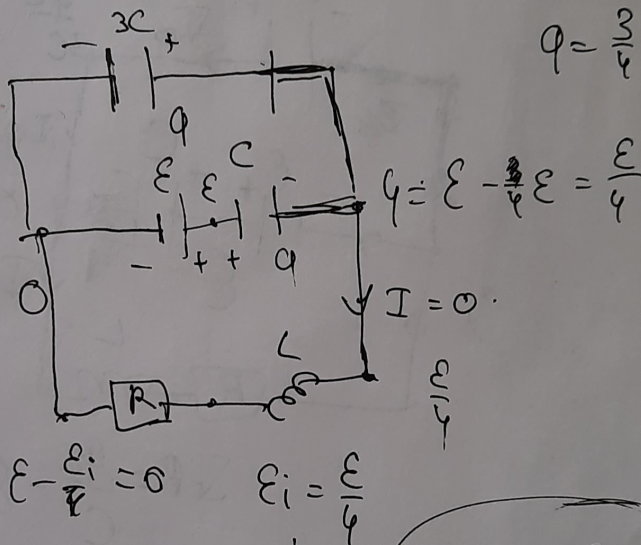 3C
- +
q = 3/4
q
ε ε C -
φ = ε - 3/4 ε = ε/4
- + + q
0
I = 0.
L
ε/4
R
ε - εi/4 = 0
εi = ε/4